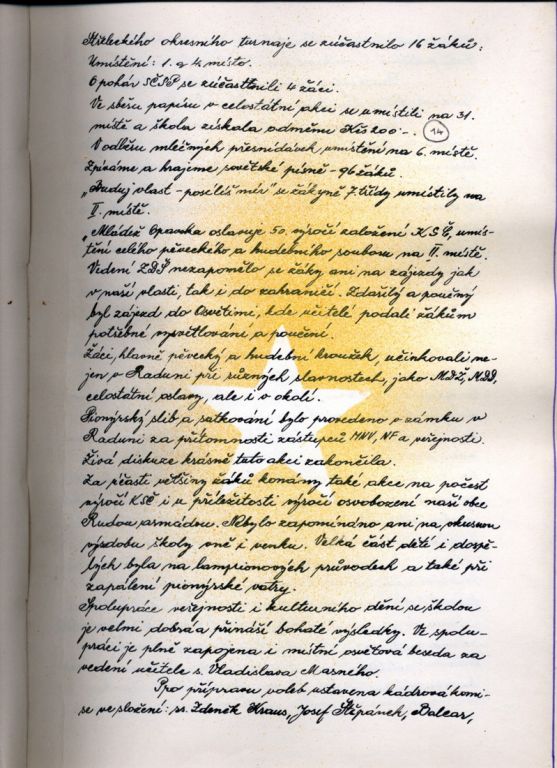 Střeleckého okresního turnaje se zúčastnilo 16 žáků:
Umístění: 1. a 4. místo.
O pohár SČSP se zúčastnili 4 žáci.
Ve sběru papíru v celostátní akci se umístili na 31.
místě a škola získala odměnu Kčs 200.-. 14
V odběru mléčných přesnídávek umístění na 6. místě.
Zpíváme a hrajeme sovětské písně - 96 žáků.
„Buduj vlast - posílíš mír" se žákyně 7. třídy umístily na
II. místě.
„Mládež Opavska oslavuje 50. výročí založení KSČ, umís-
tění celého pěveckého a hudebního souboru na II. místě.
Vedení ZDŠ nezapomělo se žáky ani na zájezdy jak
v naší vlasti, tak i do zahraničí. Zdařilý a poučný
byl zájezd do Osvětimi, kde učitelé podali žákům
potřebné vysvětlování a poučení.
Žáci, hlavně pěvecký a hudební kroužek, účinkovali ne-
jen v Raduni při různých slavnostech, jako MDŽ, MDD,
celostátní oslavy, ale i v okolí.
Pionýrský slib a šátkování bylo provedeno v zámku v
Raduni za přítomnosti zástupců MNV, NF a veřejnosti.
Živá diskuze krásně tuto akci zakončila.
Za účasti většiny žáků konány také akce na počest
výročí KSČ i u příležitosti výročí osvobození naší obce
Rudou armádou. Nebylo zapomínáno ani na vkusnou
výzdobu školy vně i venku. Velká část dětí i dospě-
lých byla na lampionových průvodech a také při
zapálení pionýrské vatry.
Spolupráce veřejnosti i kulturního dění se školou
je velmi dobrá a přináší bohaté výsledky. Ve spolu-
práci je plně zapojena i místní osvětová beseda za
vedení učitele s. Vladislava Masného.
Pro přípravu voleb ustavena kádrová komi-
se ve složení: ss. Zdeněk Kraus, Josef Štěpánek, Balcar,